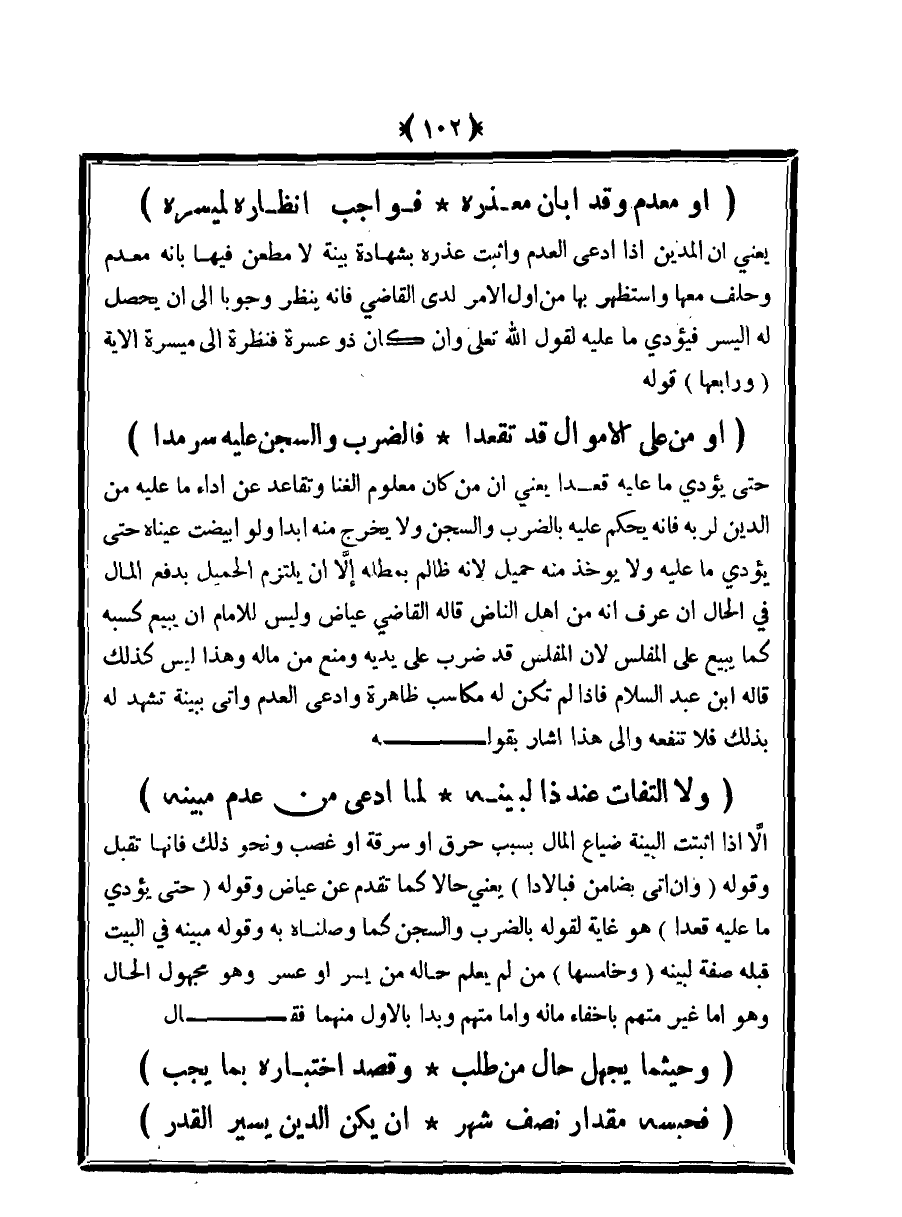 ﴿ ١٠٢ ﴾
( او معدم وقد ابان معـذره * فـواجب انظـاره لميسره )
يعني ان المدين اذا ادعى العدم واثبت عذره بشهادة بينة لا مطعن فيهـا بانه معـدم
وحلف معها واستظهر بها من اول الامر لدى القاضي فانه ينظر وجوبا الى ان يحصل
له اليسر فيؤدي ما عليه لقول الله تعلى وان كان ذو عسرة فنظرة الى ميسرة الاية
( ورابعها ) قوله
( او من على الاموال قد تقعدا * فالضرب والسجن عليه سرمدا )
حتى يؤدي ما عايه قعـدا يعني ان من كان معلوم الغنا وتقاعد عن اداء ما عليه من
الدين لربه فانه يحكم عليه بالضرب والسجن ولا يخرج منه ابدا ولو ابيضت عيناه حتى
يؤدي ما عليه ولا يوخذ منه حميل لانه ظالم بمطله إلَّا ان يلتزم الحميل بدفع المال
في الحال ان عرف انه من اهل الناض قاله القاضي عياض وليس للامام ان يبيع كسبه
كما يبيع على المفلس لان المفلس قد ضرب على يديه ومنع من ماله وهذا ليس كذلك
قاله ابن عبد السلام فاذا لم تكن له مكاسب ظاهرة وادعى العدم واتى ببينة تشهد له
بذلك فلا تنفعه والى هذا اشار بقولـــــــه
( ولا التفات عند ذا لبينـه * لما ادعى من عدم مبينه )
الَّا اذا اثبتت البينة ضياع المال بسبب حرق او سرقة او غصب ونحو ذلك فانهـا تقبل
وقوله ( وان اتى بضامن فبالادا ) يعني حالا كما تقدم عن عياض وقوله ( حتى يؤدي
ما عليه قعدا ) هو غاية لقوله بالضرب والسجن كما وصلنـاه به وقوله مبينه في البيت
قبله صفة لبينه ( وخامسها ) من لم يعلم حـاله من يسر او عسر وهو مجهول الحال
وهو اما غير متهم باخفاء ماله واما متهم وبدا بالاول منهما فقـــــــال
( وحيثما يجهل حال من طلب * وقصد اختبـاره بما يجب )
( فحبسه مقدار نصف شهر * ان يكن الدين يسير القدر )